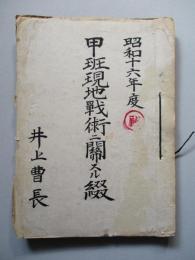 昭和十六年度
戦
甲班現地戰術ニ關スル綴
井上曹長